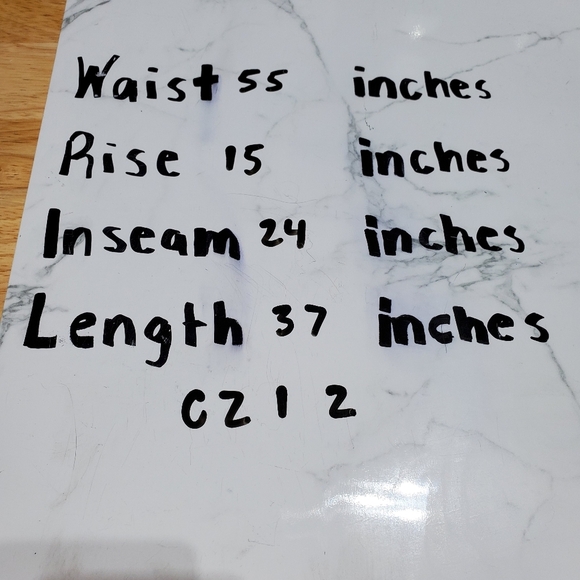 Waist 55 inches
Rise 15 inches
Inseam 24 inches
Length 37 inches
CZ12